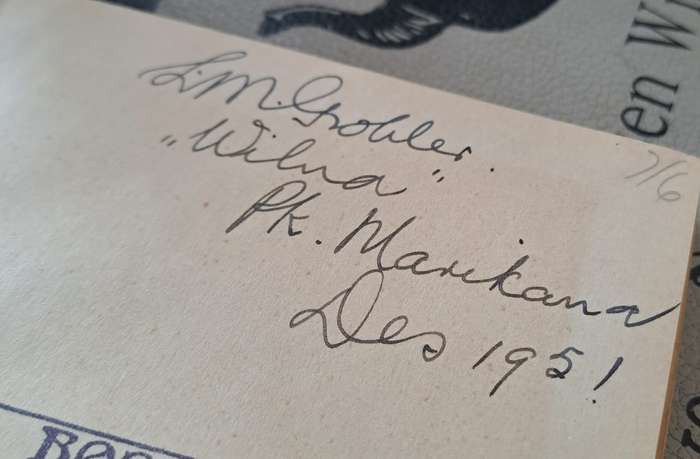 L.M. Grobler.
"Wilna"
Pk. Marikana
Des 1951
7/6
en Wi